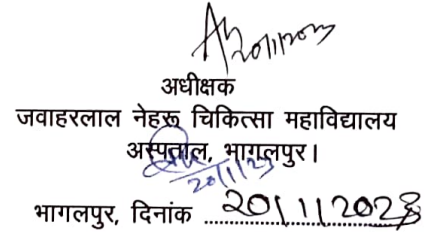 20/1/2023
अधीक्षक
जवाहरलाल नेहरू चिकित्सा महाविद्यालय
अस्पताल, भागलपुर।
20/1/23
भागलपुर, दिनांक 20/1/2023